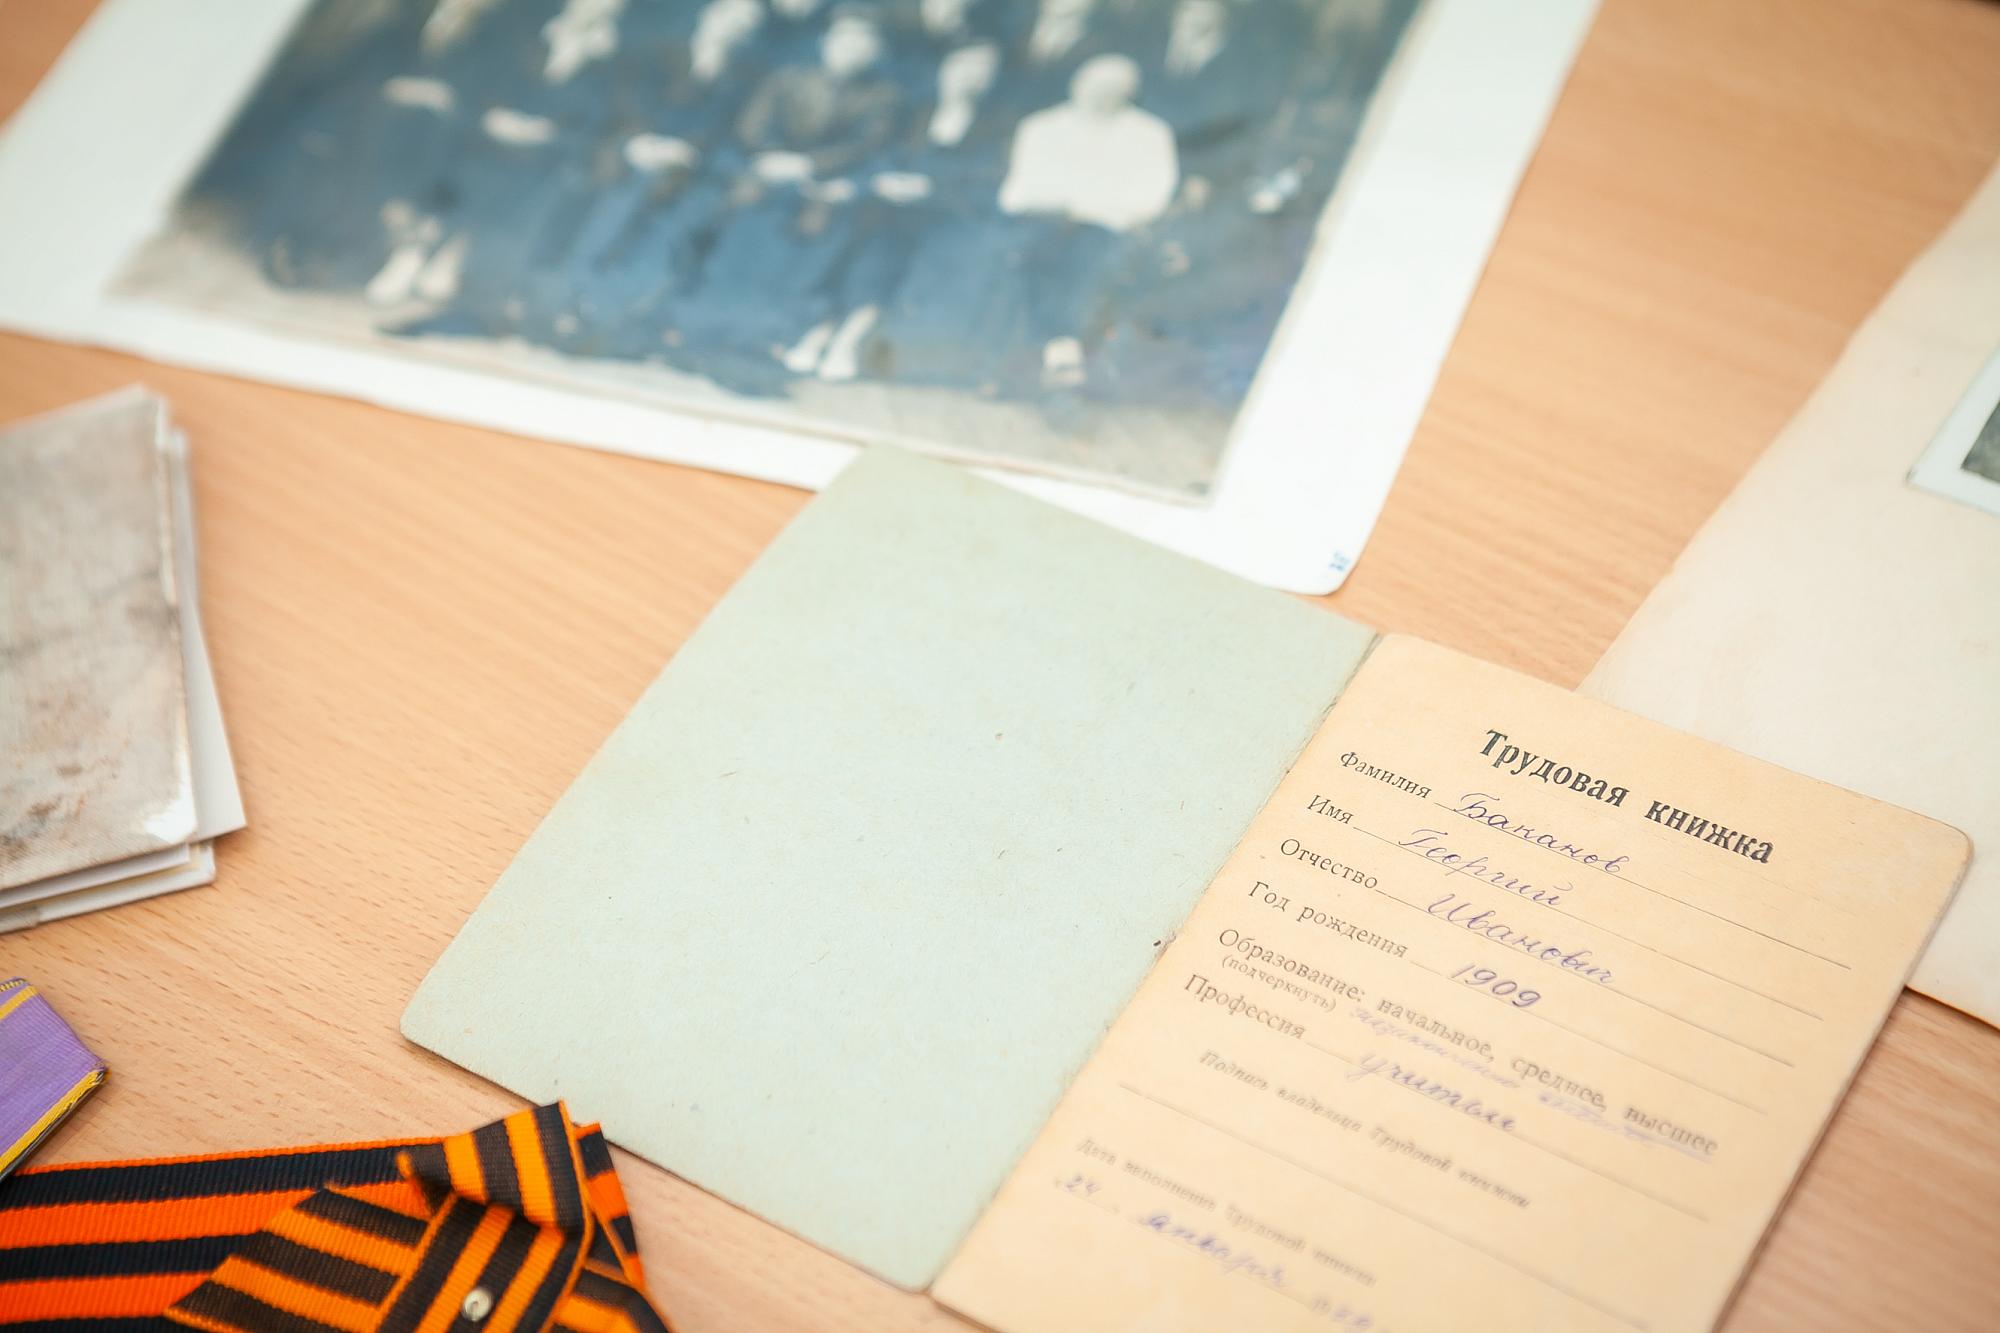 Трудовая книжка
Фамилия Баканов
Имя Георгий
Отчество Иванович
Год рождения 1909
Образование: начальное, среднее, высшее
(подчеркнуть)
Профессия учитель
Подпись владельца Трудовой книжки
Дата заполнения Трудовой книжки
24 января